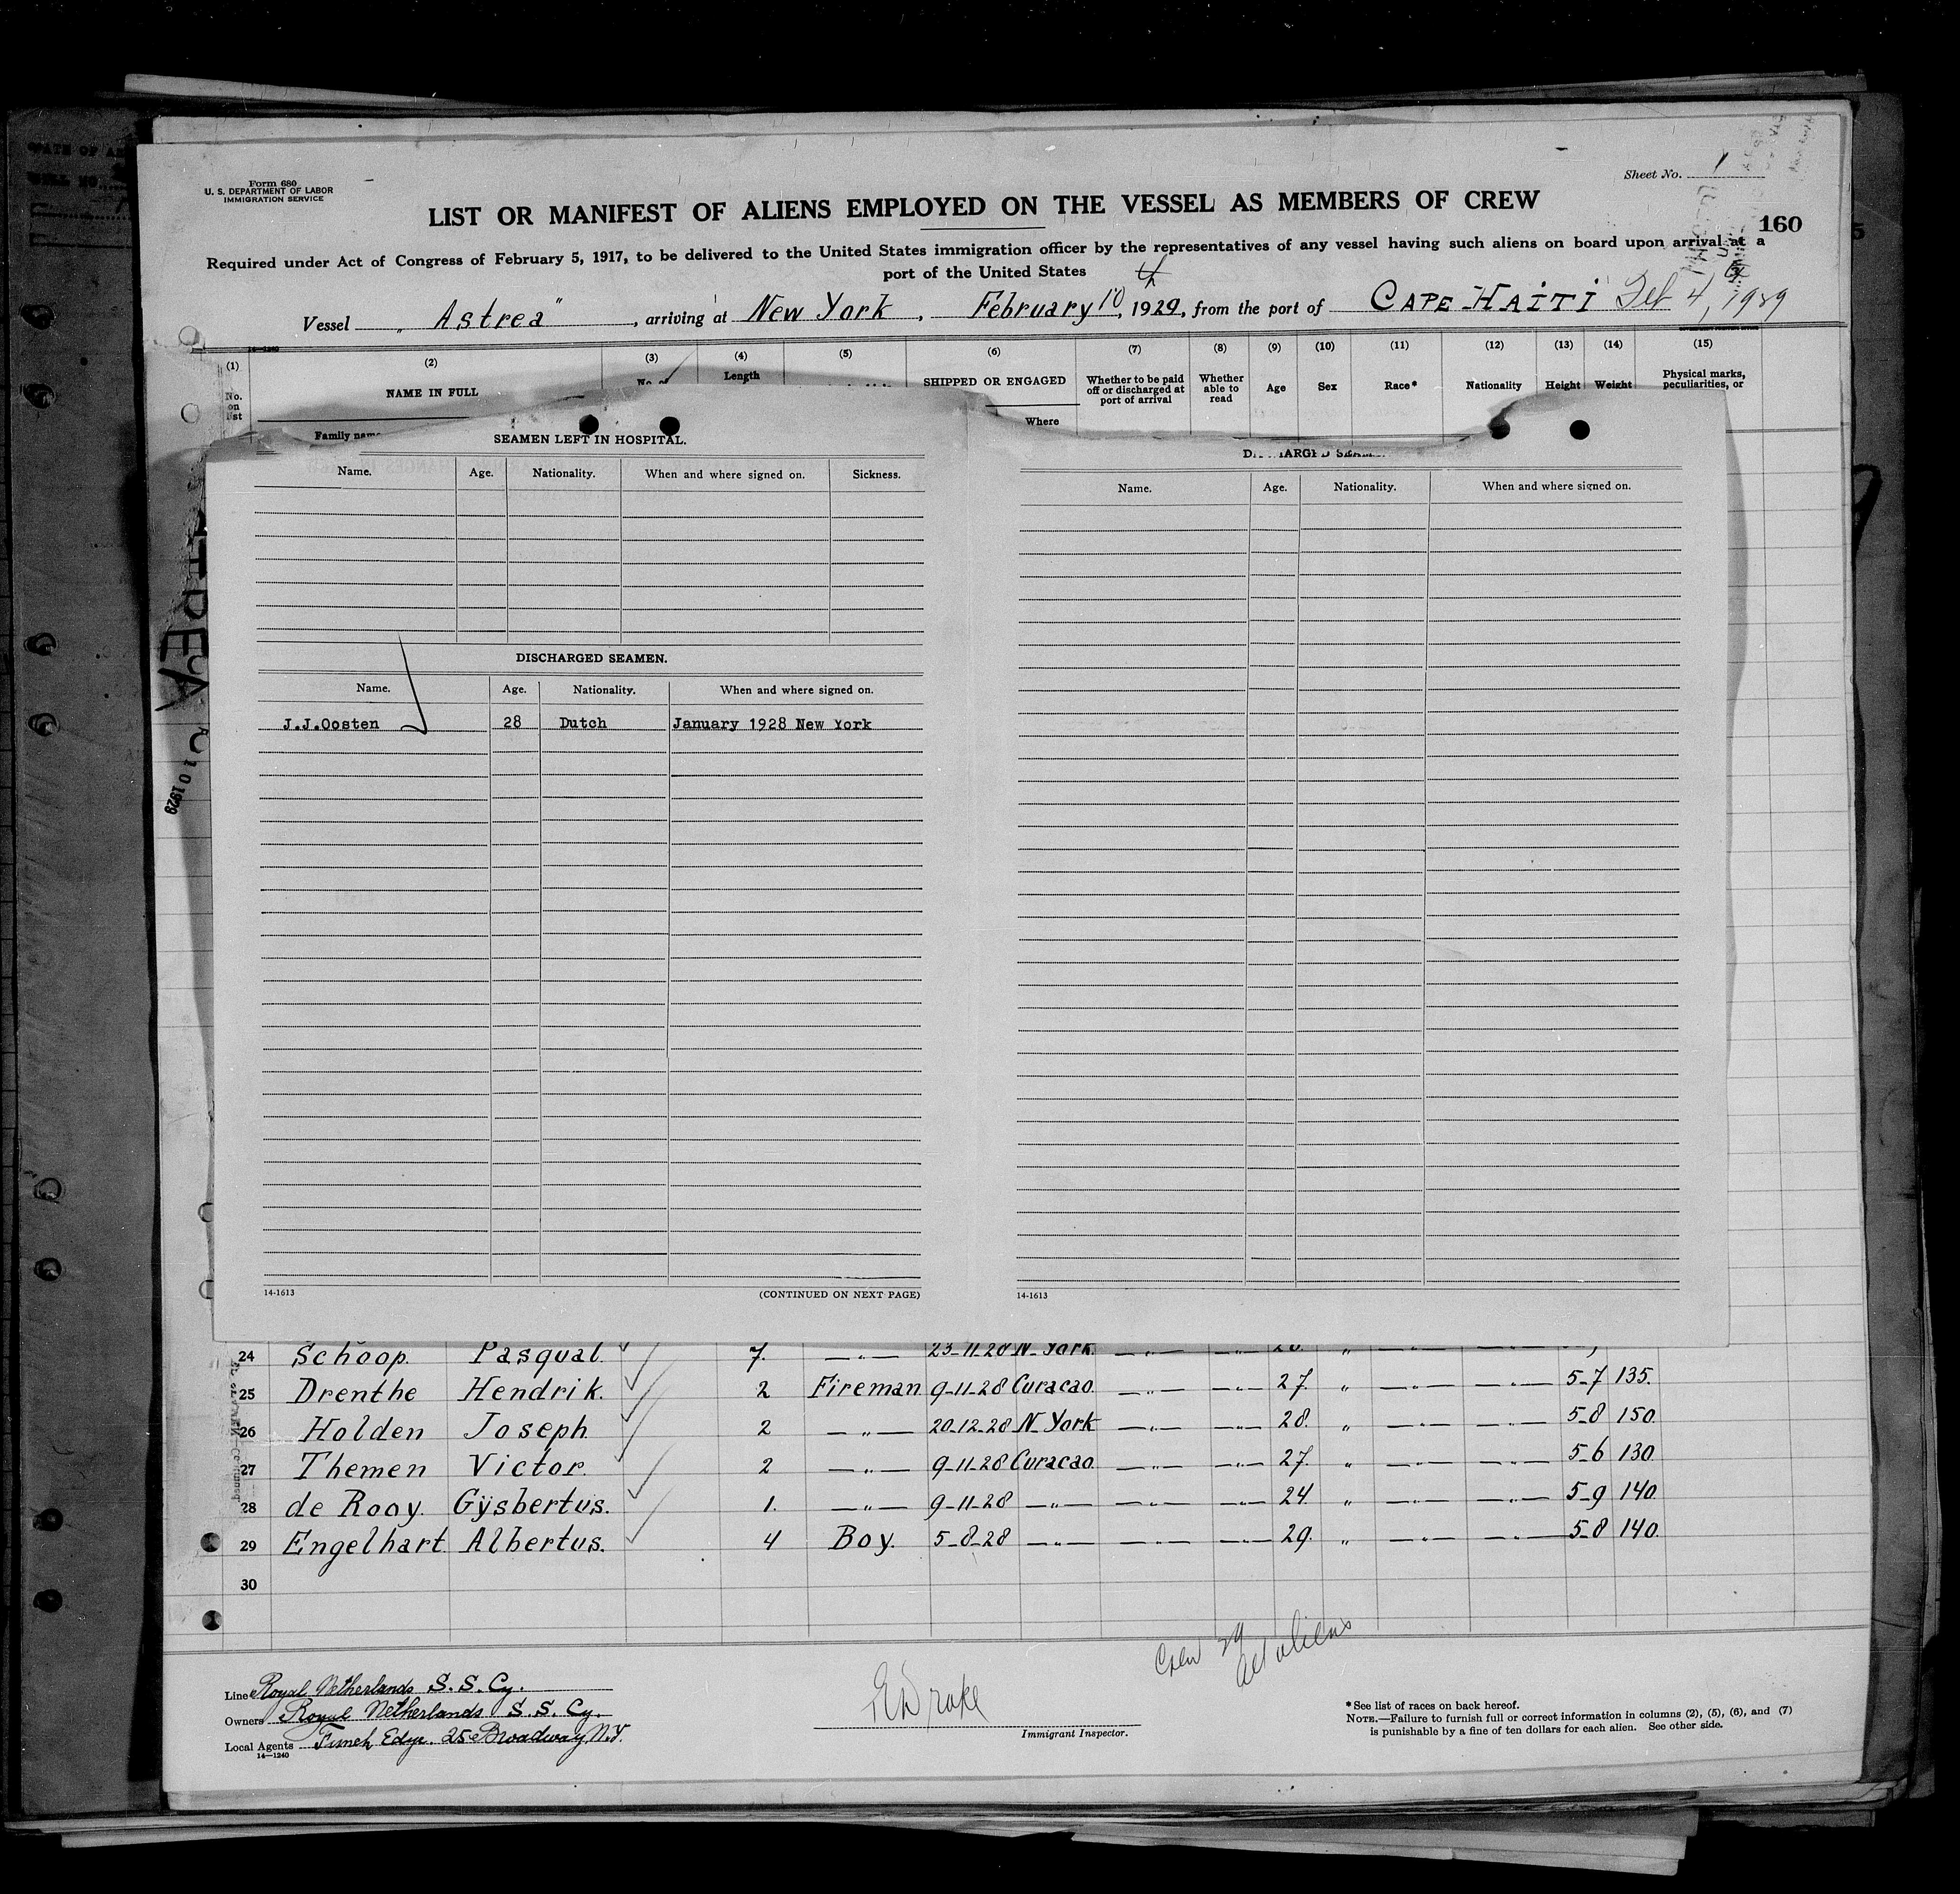 Form 680
U. S. DEPARTMENT OF LABOR
IMMIGRATION SERVICE
Sheet No. 1
LIST OR MANIFEST OF ALIENS EMPLOYED ON THE VESSEL AS MEMBERS OF CREW
160
Required under Act of Congress of February 5, 1917, to be delivered to the United States immigration officer by the representatives of any vessel having such aliens on board upon arrival at a
port of the United States
Vessel „Astrea“, arriving at New York, February 10th, 1929, from the port of CAPE HAITI Feb 4, 1929
14-1240
(1) (2) (3) (4) (5) (6) (7) (8) (9) (10) (11) (12) (13) (14) (15)
No. on list NAME IN FULL No. of Length SHIPPED OR ENGAGED Whether to be paid off or discharged at port of arrival Whether able to read Age Sex Race* Nationality Height Weight Physical marks, peculiarities, or
Family name Where
SEAMEN LEFT IN HOSPITAL.
Name. Age. Nationality. When and where signed on. Sickness.
DISCHARGED SEAMEN.
Name. Age. Nationality. When and where signed on.
J.J.Oosten 28 Dutch January 1928 New York
14-1613 (CONTINUED ON NEXT PAGE)
DISCHARGED SEAMEN.
Name. Age. Nationality. When and where signed on.
14-1613
ASTREA
10 1929
24 Schoop. Pasqual. 7. —„— 23-11-28 N-York. —„— —„— „ —„— —„—
25 Drenthe Hendrik. 2 Fireman 9-11-28 Curacao. —„— —„— 27. „ —„— —„— 5-7 135.
26 Holden Joseph. 2 —„— 20-12-28 N-York —„— —„— 28. „ —„— —„— 5-8 150.
27 Themen Victor. 2 —„— 9-11-28 Curacao. —„— —„— 27. „ —„— —„— 5-6 130.
28 de Rooy. Gÿsbertus. 1. —„— 9-11-28 —„— —„— —„— 24. „ —„— —„— 5-9 140.
29 Engelhart Albertus. 4 Boy. 5-8-28 —„— —„— —„— 29. „ —„— —„— 5-8 140.
30
Crew 29
all aliens
Line Royal Netherlands S. S. Cy.
Owners Royal Netherlands S. S. Cy.
Local Agents Funch Edye. 25 Broadway, N.Y.
14-1240
E Drake
Immigrant Inspector.
*See list of races on back hereof.
NOTE.—Failure to furnish full or correct information in columns (2), (5), (6), and (7)
is punishable by a fine of ten dollars for each alien. See other side.